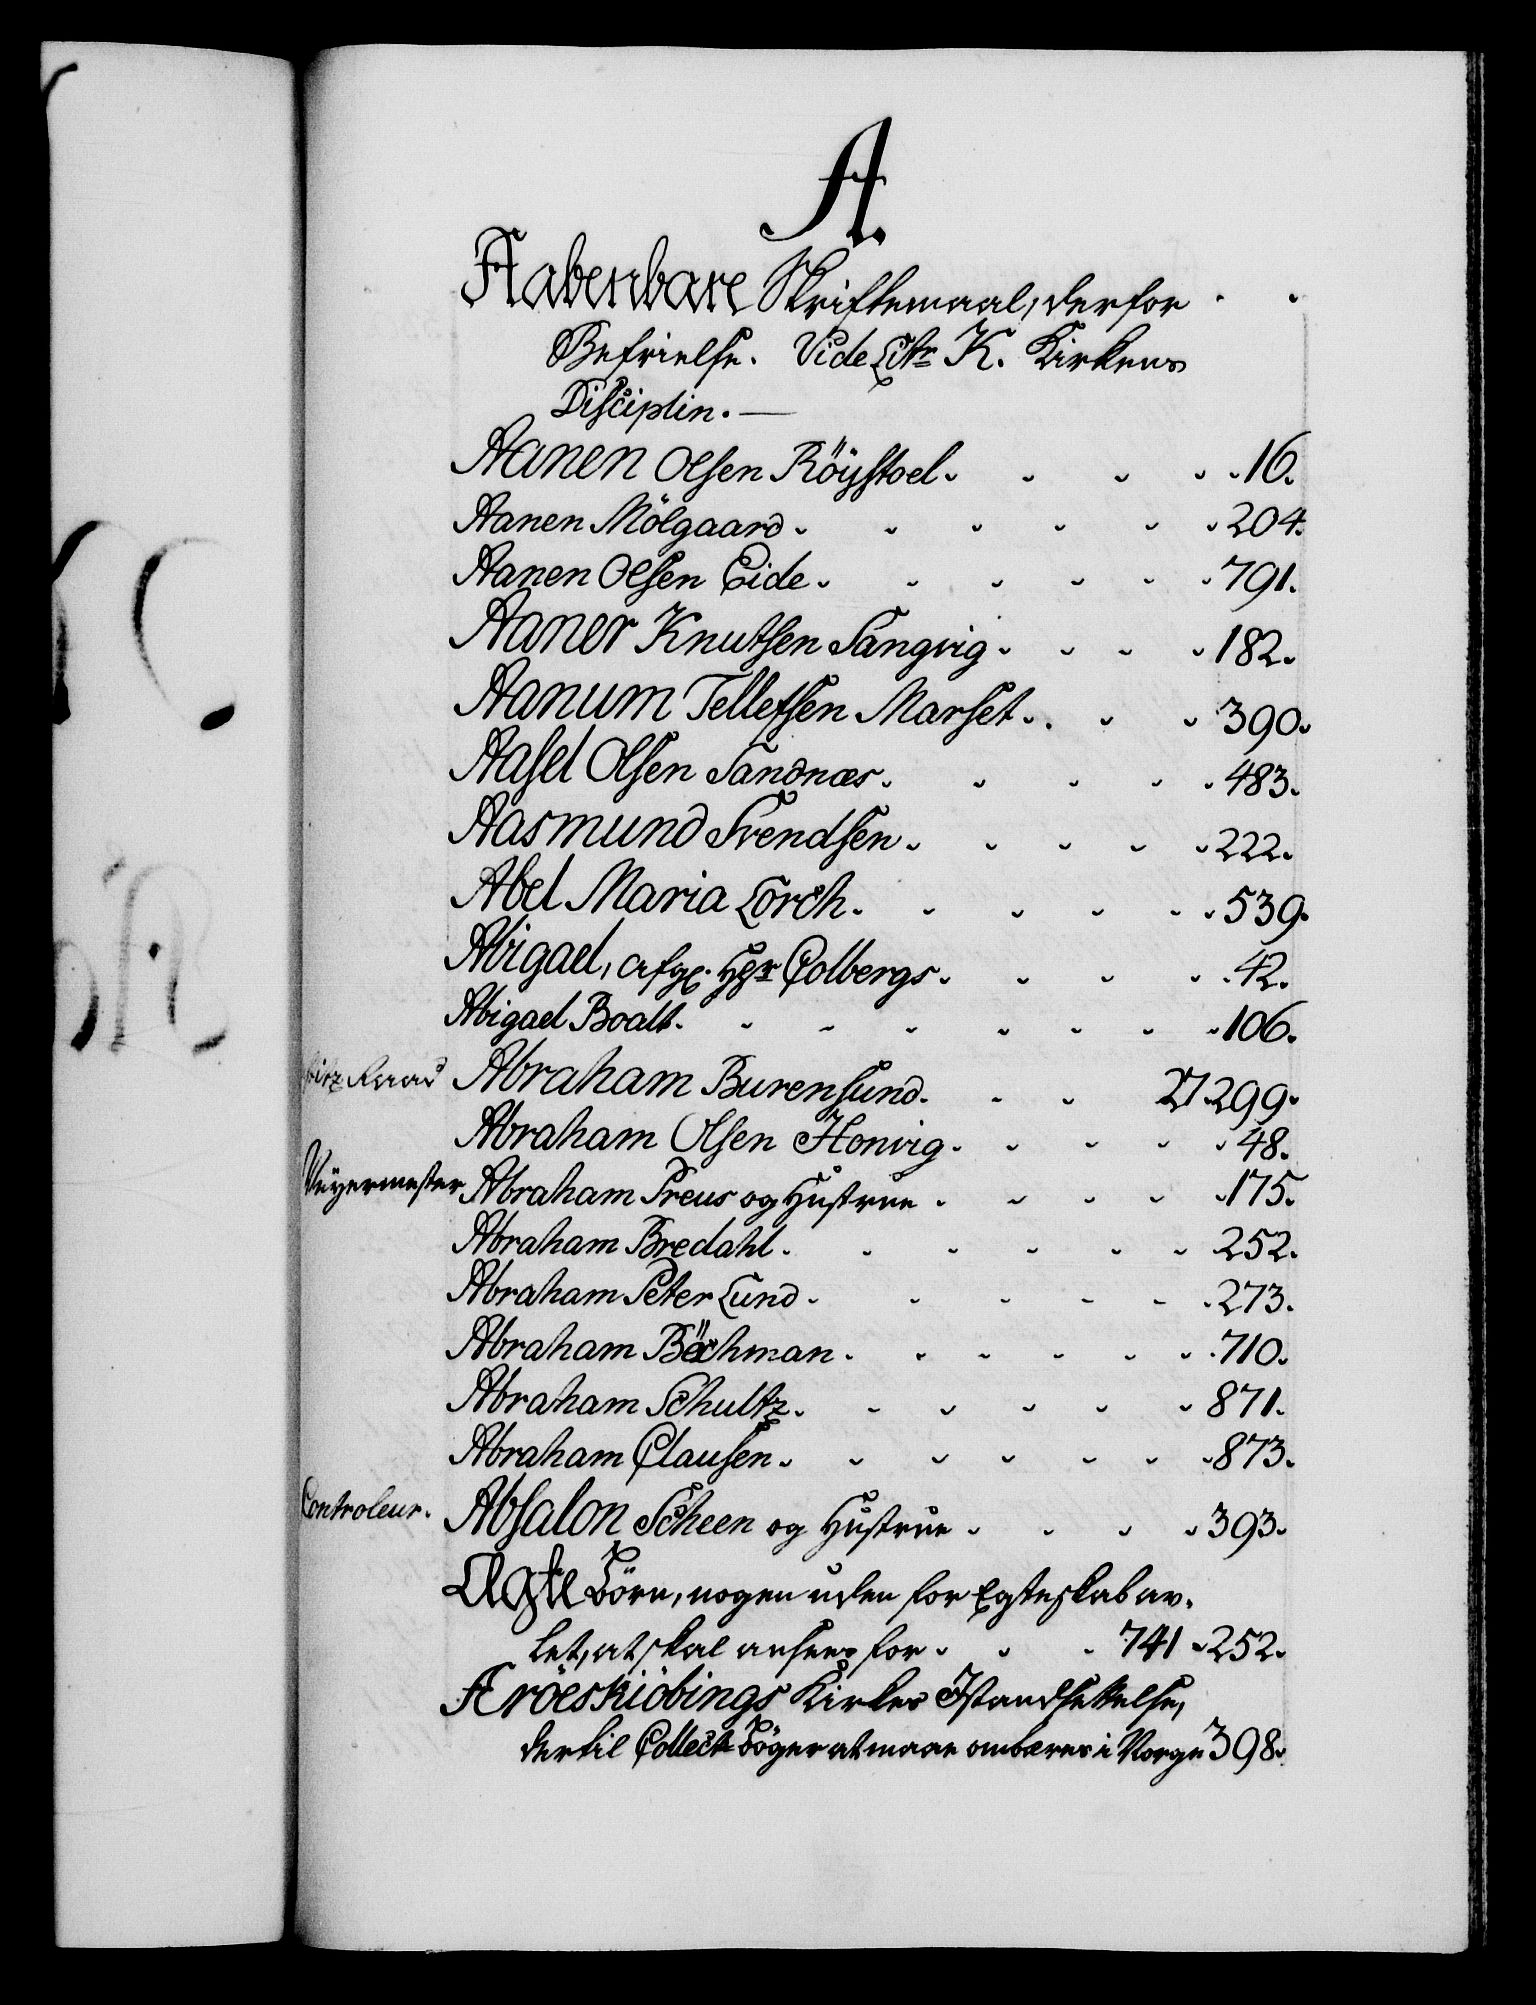 A.
Aabenbare Skriftemaal, derfor
Befrielse. Vide Litr K. Kirkens
Disciplin. —
Aanen Olsen Röystoel. 16.
Aanen Mölgaard. 204.
Aanen Olsen Eide. 791.
Aaner Knutsen Sangvig. 182.
Aanum Tellefsen Marset. 390.
Aasel Olsen Sandnæs. 483.
Aasmund Svendsen. 222.
Abel Maria Lorch. 539.
Abigael, afg. Hgr Colbergs. 42.
Abigael Boalt. 106.
Raad Abraham Burensund. 27. 299.
Abraham Olsen Honvig. 48.
Veyermester Abraham Preus og Hustrue. 175.
Abraham Bredahl. 252.
Abraham Peter Lund. 273.
Abraham Böchman. 710.
Abraham Schultz. 871.
Abraham Clausen. 873.
Controleur. Absalon Scheen og Hustrue. 393.
Ægte Börn, nogen uden for Egteskab av-
let, at skal ansees for. 741. 252.
Æröeskiöbings Kirkes Istandsettelse,
dertil Collect Böger at maae ombæres i Norge 398.